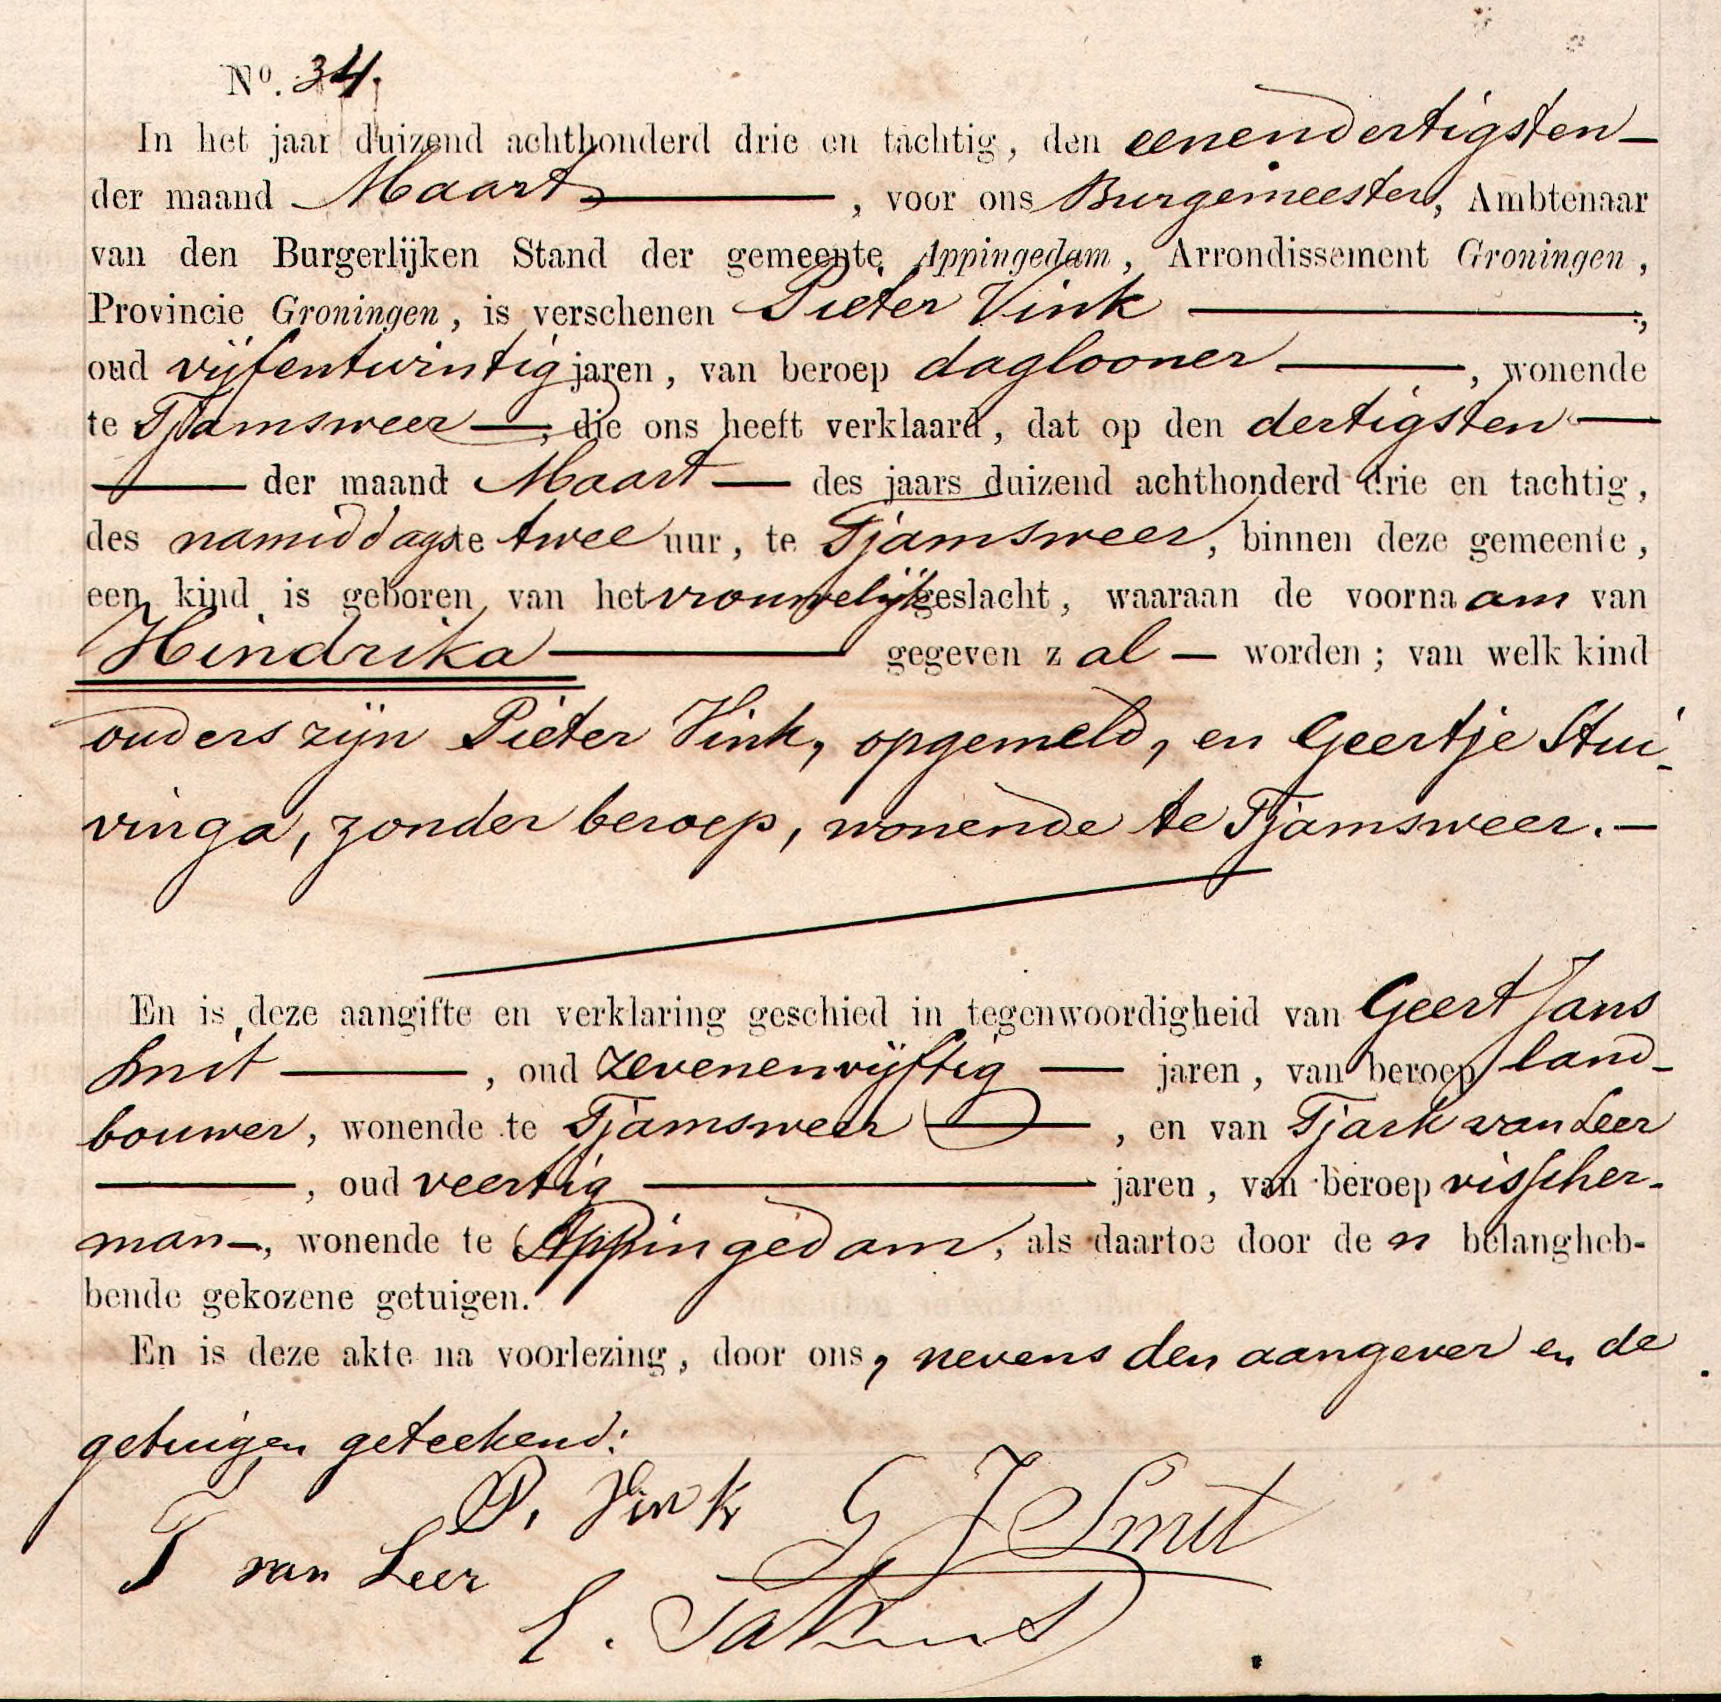 No. 34.
In het jaar duizend achthonderd drie en tachtig, den eenendertigsten —
der maand Maart —, voor ons Burgemeester, Ambtenaar
van den Burgerlijken Stand der gemeente Appingedam, Arrondissement Groningen,
Provincie Groningen, is verschenen Pieter Vink —,
oud vijfentwintig jaren, van beroep daglooner —, wonende
te Tjamsweer —, die ons heeft verklaard, dat op den dertigsten —
— der maand Maart — des jaars duizend achthonderd drie en tachtig,
des namiddags te twee uur, te Tjamsweer, binnen deze gemeente,
een kind is geboren van het vrouwelijk geslacht, waaraan de voornaam van
Hindrika — gegeven zal — worden; van welk kind
ouders zijn Pieter Vink, opgemeld, en Geertje Stui-
vinga, zonder beroep, wonende te Tjamsweer. —
En is deze aangifte en verklaring geschied in tegenwoordigheid van Geert Jans
Smit —, oud zevenenvijftig — jaren, van beroep land-
bouwer, wonende te Tjamsweer —, en van Tjark van Leer
—, oud veertig — jaren, van beroep visscher-
man —, wonende te Appingedam, als daartoe door de n belangheb-
bende gekozene getuigen.
En is deze akte na voorlezing, door ons, nevens den aangever en de
getuigen geteekend:
P. Vink G J Smit
T van Leer